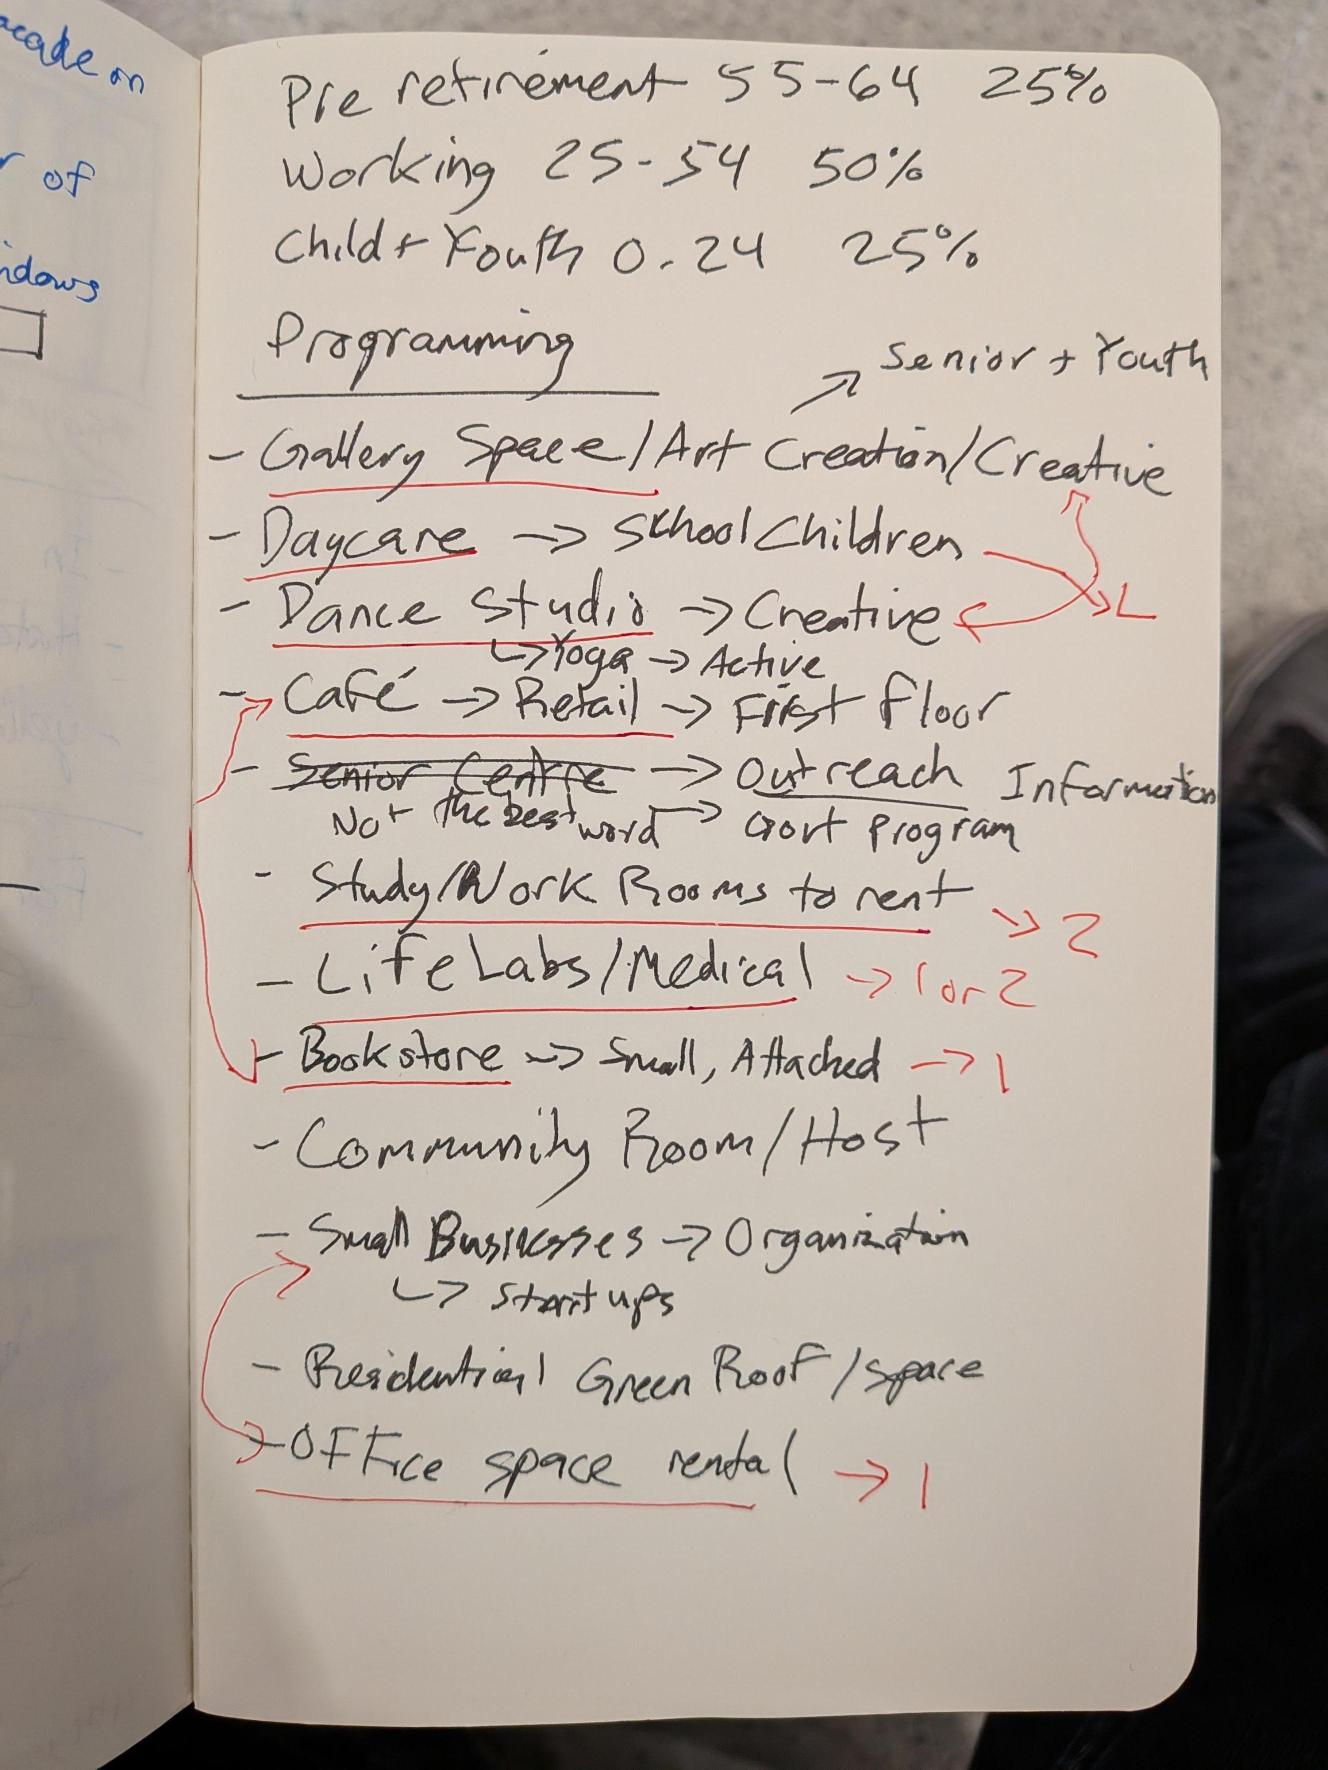 acade on
of
ndows
Pre retirement 55-64 25%
Working 25-54 50%
Child + Youth 0-24 25%
Programming
→ Senior + Youth
- Gallery Space/Art Creation/Creative
- Daycare → School Children
- Dance Studio → Creative
↳ Yoga → Active
- Café → Retail → First floor
- Senior Centre → Outreach Information
Not the best word → Govt program
- Study/Work Rooms to rent → 2
- LifeLabs/Medical → 1 or 2
- Bookstore → Small, Attached → 1
- Community Room/Host
- Small Businesses → Organization
↳ Start ups
- Residential Green Roof/space
- Office space rental → 1